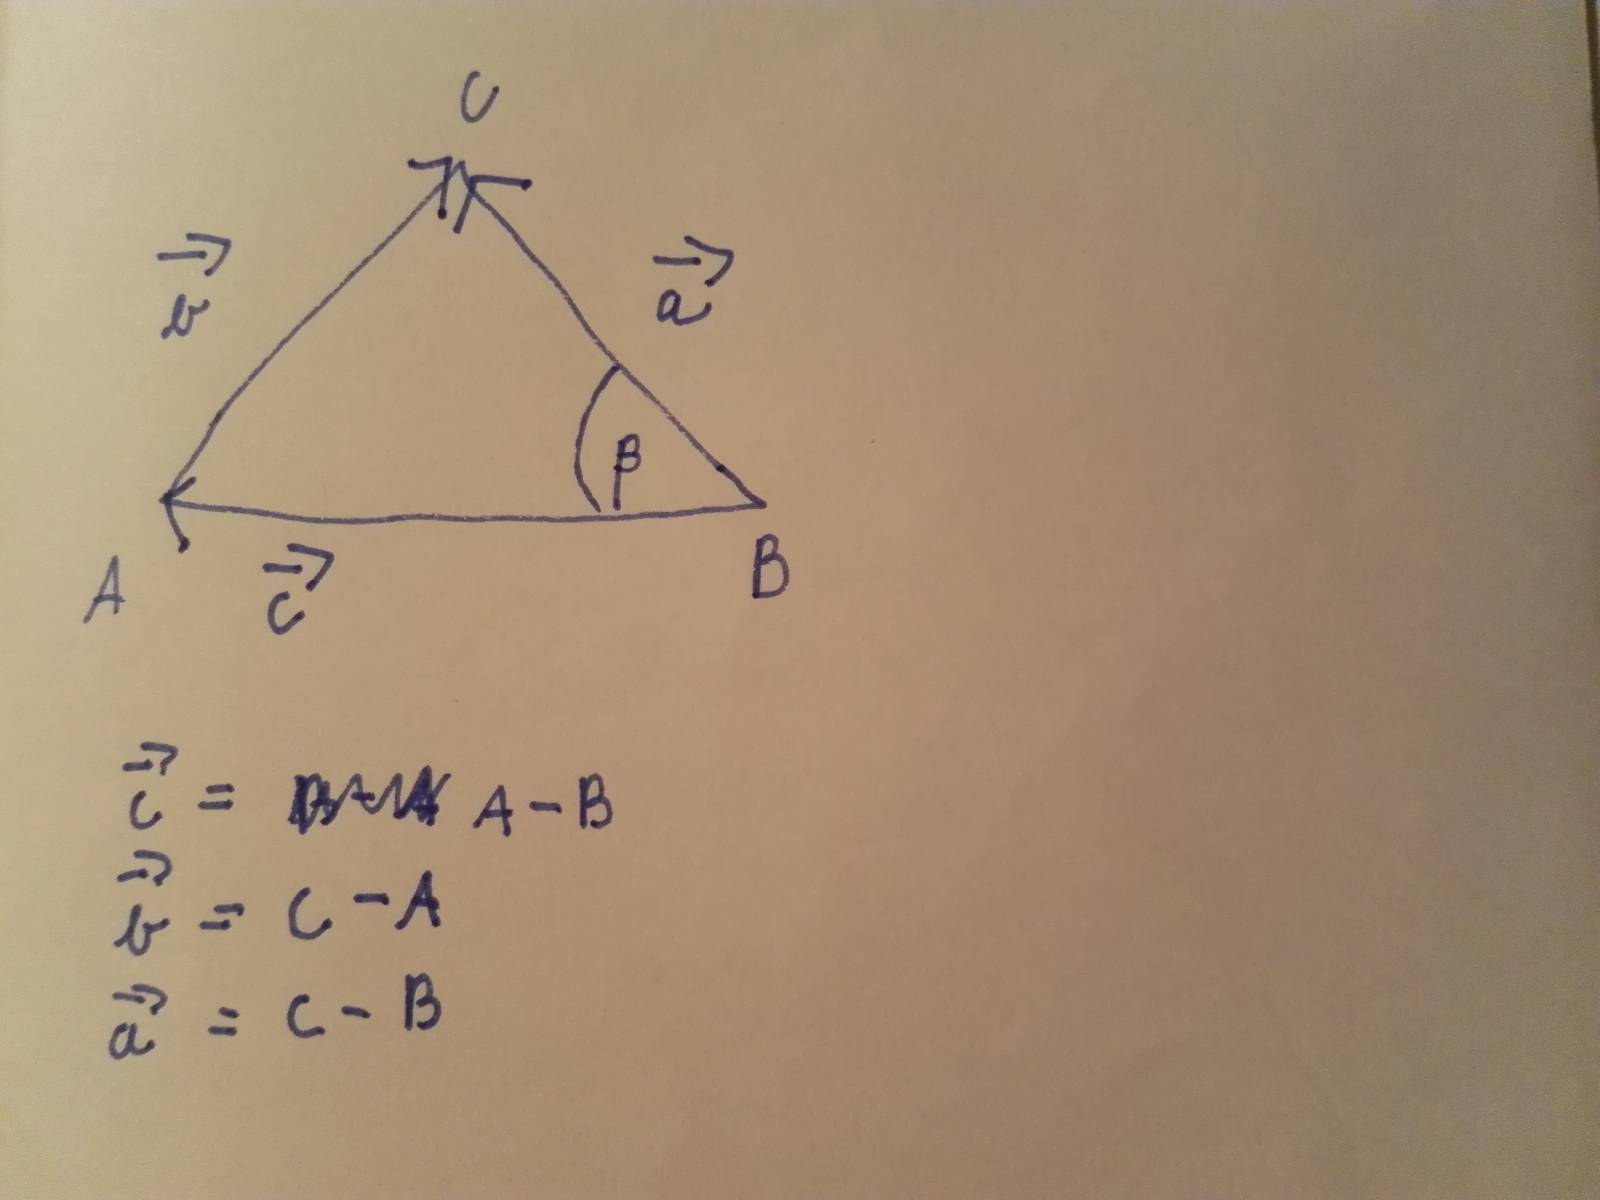 C
b⃗
a⃗
β
A
c⃗
B
c⃗ = A - B
b⃗ = C - A
a⃗ = C - B